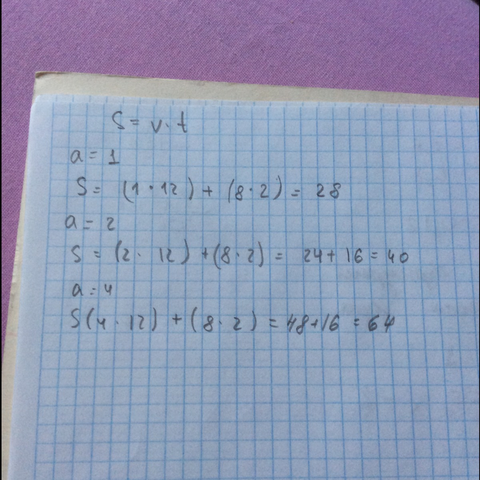 S = v · t
a = 1
S = (1 · 12) + (8 · 2) = 28
a = 2
S = (2 · 12) + (8 · 2) = 24 + 16 = 40
a = 4
S(4 · 12) + (8 · 2) = 48 + 16 = 64